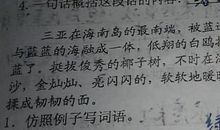 4.一句话概括这段话的内容
三亚在海南岛的最南端,被蓝
与蓝蓝的海融成一体,低翔的白鸥
蓝了。挺拔俊秀的椰子树,不时在
沙,金灿灿、亮闪闪的,软软地暖
揉成韧韧的面。
1. 仿照例子写词语。